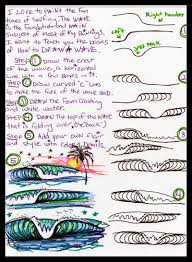 I LOVE to PAINT the fun
times of Surfing. The WAVE
is the foundation and main
Subject of Most of my Paintings.
I want to Teach you the basics
of How to DRAW A WAVE.
Step 1 Draw the crest
of the wave, a horizontal
Line with a few bends in it.
Step 2 Draw curved "c" Lines
to make the face of the wave
Step 3 DRAW the Foam Crashing
and white water.
Step 4 DRAW the top of the wave
that is folding over.
Step 5 Add your own Flair
and style with Colored Details.
Right hander
Left
1
2
3
4
5